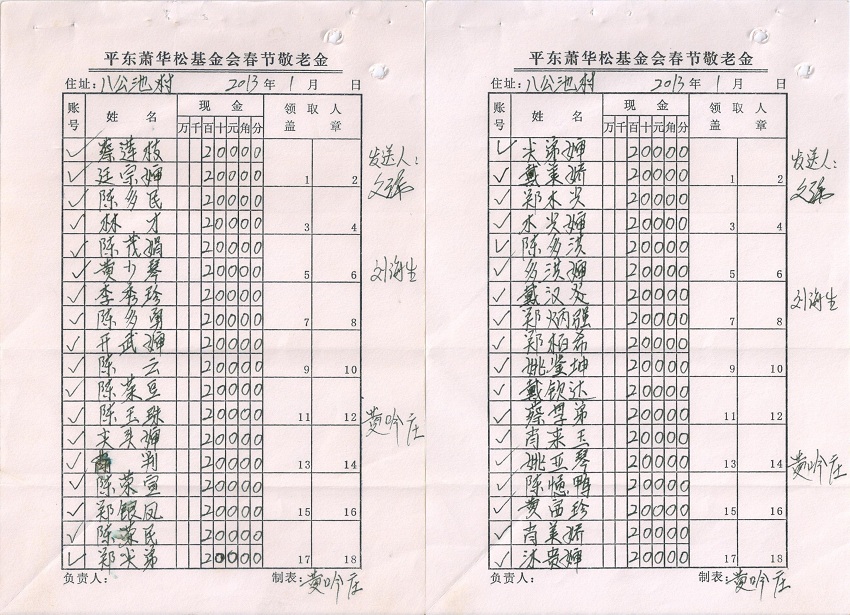 平东萧华松基金会春节敬老金
住址：八公池村 2013年 1月 日
账号 姓名 现金 领取人盖章
万 千 百 十 元 角 分
蔡莲枝 20000
廷宗婶 20000 1 2
陈多民 20000
林才 20000 3 4
陈茂娟 20000
黄少琴 20000 5 6
李秀珍 20000
陈多勇 20000 7 8
开武婶 20000
陈云 20000 9 10
陈菜豆 20000
陈玉珠 20000 11 12
20000
20000 13 14
陈荣宣 20000
郑银凤 20000 15 16
陈荣民 20000
郑尖弟 20000 17 18
发送人：
刘海生
黄吟庄
负责人： 制表：黄吟庄
平东萧华松基金会春节敬老金
住址：八公池村 2013年 1月 日
账号 姓名 现金 领取人盖章
万 千 百 十 元 角 分
尖弟婶 20000
戴美娇 20000 1 2
郑木尖 20000
木尖婶 20000 3 4
陈多洪 20000
多洪婶 20000 5 6
戴汉 20000
郑炳强 20000 7 8
郑柏希 20000
姚坤 20000 9 10
戴钦达 20000
蔡弟 20000 11 12
肖来玉 20000
姚亚琴 20000 13 14
陈憶鸭 20000
黄珍 20000 15 16
肖美娇 20000
沐贵婶 20000 17 18
发送人：
刘海生
黄吟庄
负责人： 制表：黄吟庄